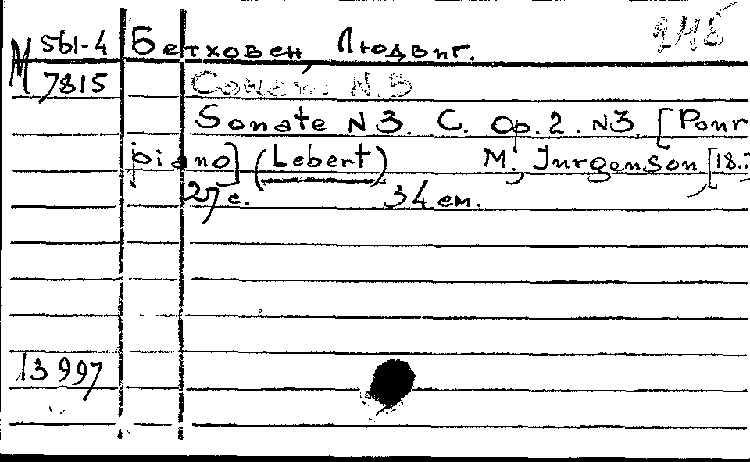 М 561-4 Бетховен, Людвиг. 245
7815 Сонат. N.3
Sonate N3. C. Op. 2. N3 [Pour
piano] (Lebert) M., Jurgenson, [18.
27 с. 34 см.
13997